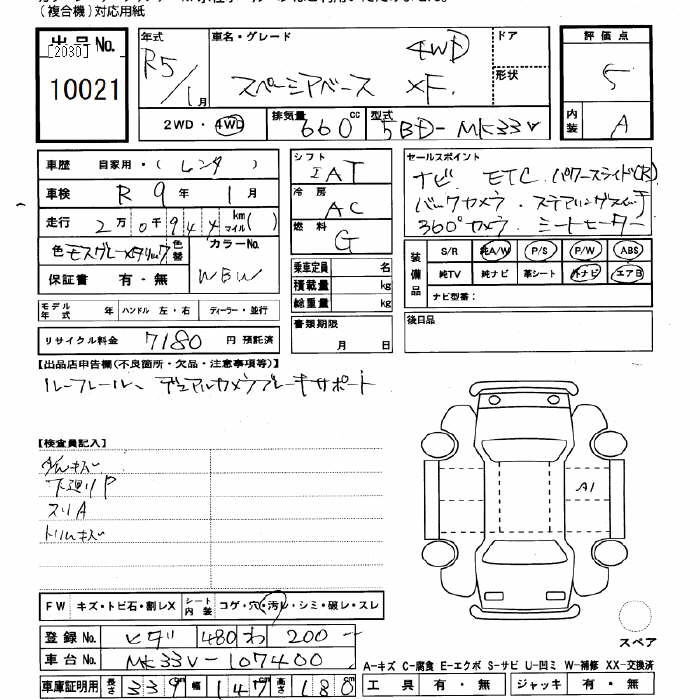 (複合機)対応用紙
出品No.
[2030]
10021
年式 R5/1月
車名・グレード 4WD
スペーシアベース XF
ドア
形状
2WD・4WD
排気量 660 cc
型式 5BD-MK33V
評価点
5
内装 A
車歴 自家用・(レンタ)
車検 R 9年 1月
走行 2万0千944 kmマイル( )
色 モスグレーメタリック 色替
カラーNo. WBW
保証書 有・無
モデル年式 年 ハンドル 左・右 ディーラー・並行
リサイクル料金 7180 円 預託済
シフト IAT
冷房 AC
燃料 G
乗車定員 名
積載量 kg
総重量 kg
書類期限
月 日
セールスポイント
ナビ ETC パワースライド(R)
バックカメラ・ステアリングスイッチ
360°カメラ・シートヒーター
装備品 S/R 純A/W P/S P/W ABS
純TV 純ナビ 革シート 外ナビ エアB
ナビ型番:
後日品
【出品店申告欄(不良箇所・欠品・注意事項等)】
ルーフレール、デュアルカメラブレーキサポート
【検査員記入】
下廻りP
スリA
トリムキズ
A1
FW キズ・トビ石・割レX
シート内装 コゲ・穴・汚レ・シミ・破レ・スレ
スペア
登録No. 480 わ 200
車台No. MK33V-107400
車庫証明用 長さ 339cm 幅 147cm 高さ 180cm
A-キズ C-腐食 E-エクボ S-サビ U-凹ミ W-補修 XX-交換済
工具 有・無 ジャッキ 有・無